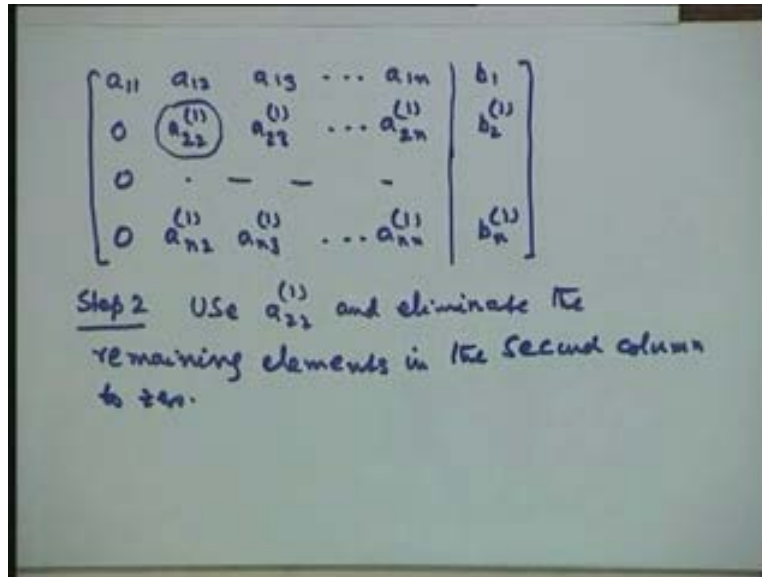 a₁₁ a₁₂ a₁₃ ... a₁ₙ | b₁
0 a₂₂⁽¹⁾ a₂₃⁽¹⁾ ... a₂ₙ⁽¹⁾ | b₂⁽¹⁾
0 . — — -
0 aₙ₂⁽¹⁾ aₙ₃⁽¹⁾ ... aₙₙ⁽¹⁾ | bₙ⁽¹⁾
Step 2 Use a₂₂⁽¹⁾ and eliminate the
remaining elements in the second column
to zero.